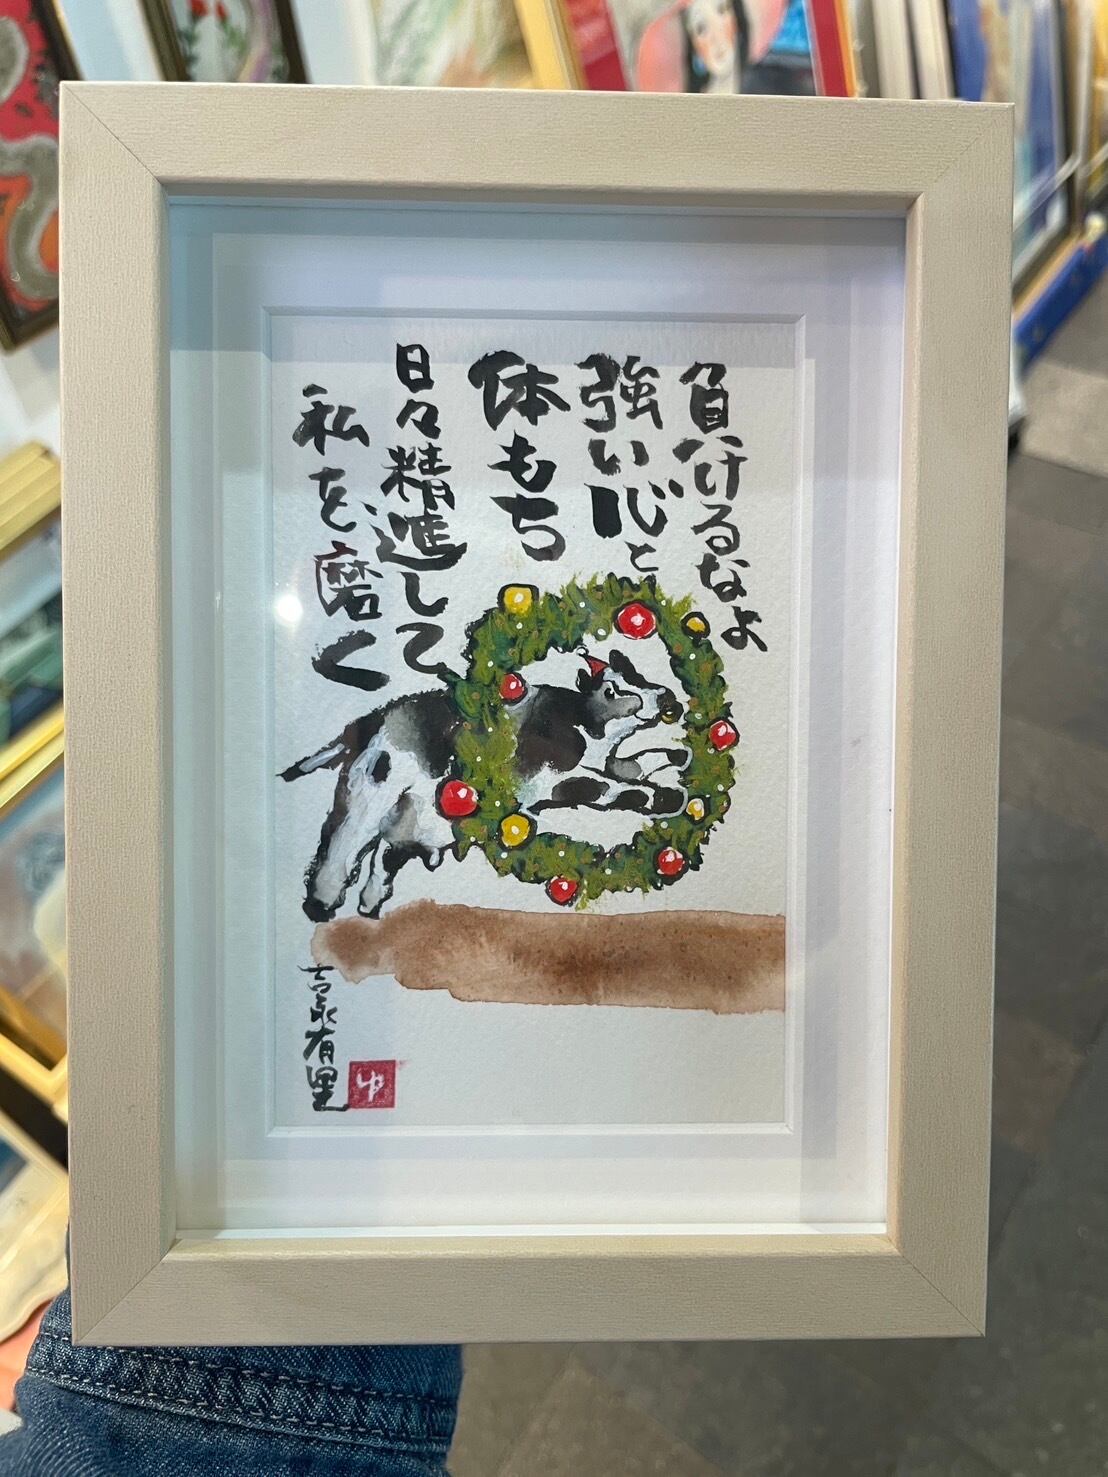 負けるなよ
強い心と
体もち
日々精進して
私を磨く
吉泉有里
ゆ